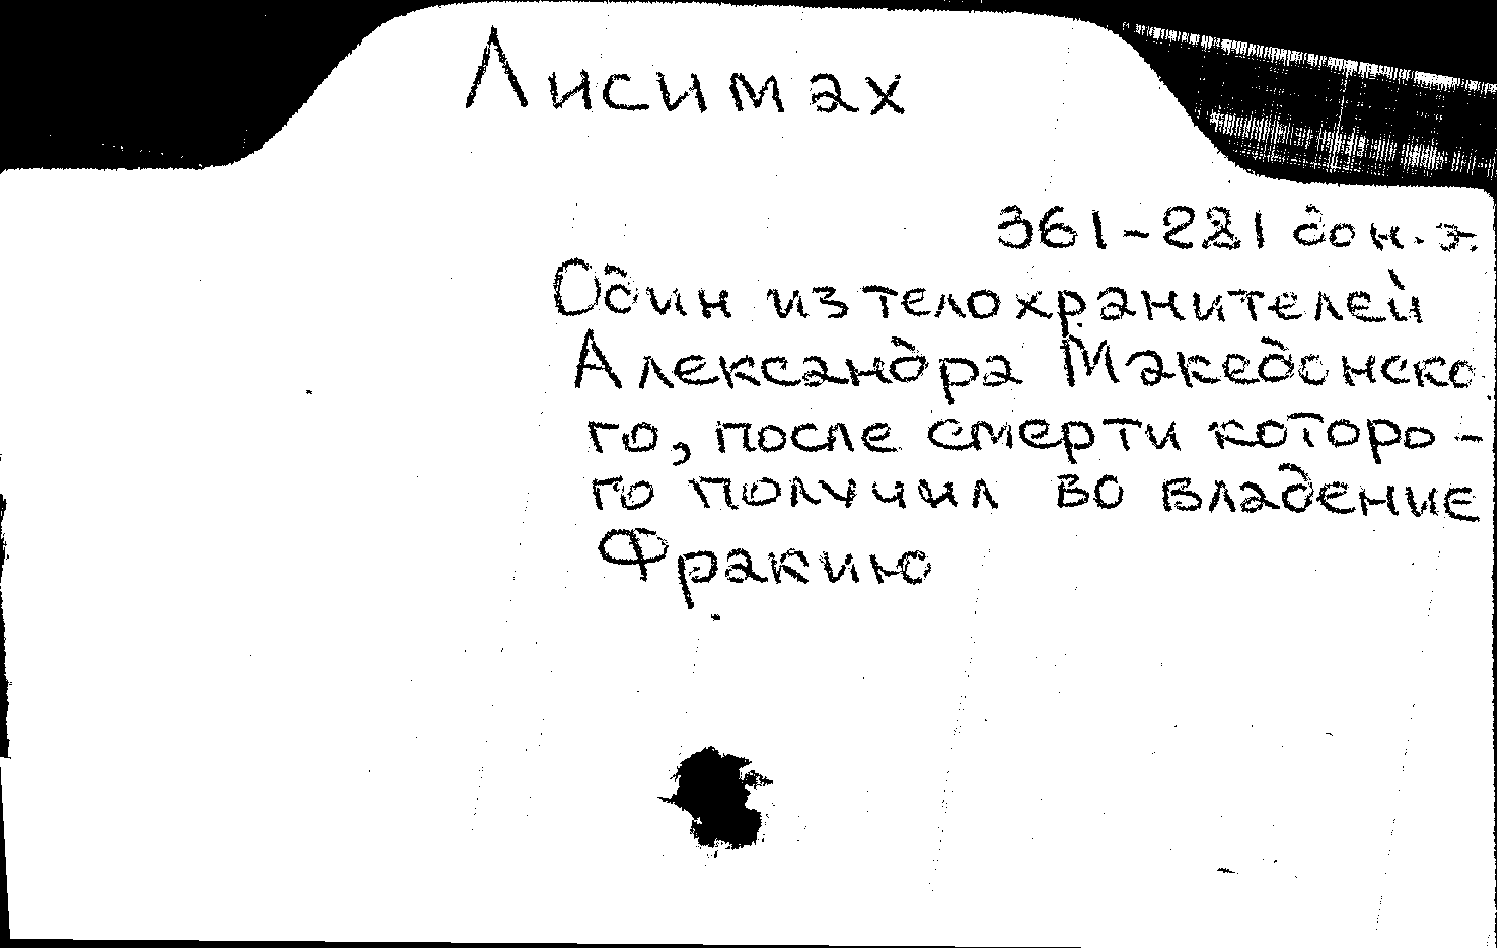 Лисимах
361-281 до н. э.
Один из телохранителей
Александра Македонско
го, после смерти которо-
го получил во владение
Фракию